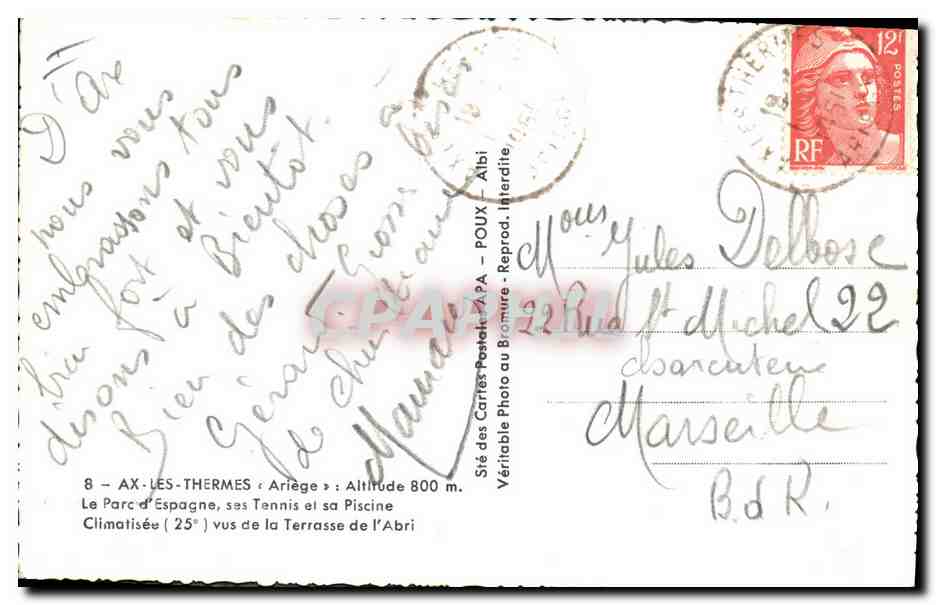 D'Ax
nous vous
embrassons tous
bien fort et vous
disons à Bientot.
Bien des choses à
Gérard. Grosses bises
de chez
Maman
8 - AX-LES-THERMES « Ariège » : Altitude 800 m.
Le Parc d'Espagne, ses Tennis et sa Piscine
Climatisée ( 25° ) vus de la Terrasse de l'Abri
Sté des Cartes Postales APA - POUX - Albi
Véritable Photo au Bromure - Reprod. Interdite
12f
POSTES
RF
Mous Jules Delbosc
22 Rue St Michel 22
charcuterie
Marseille
B. d R.